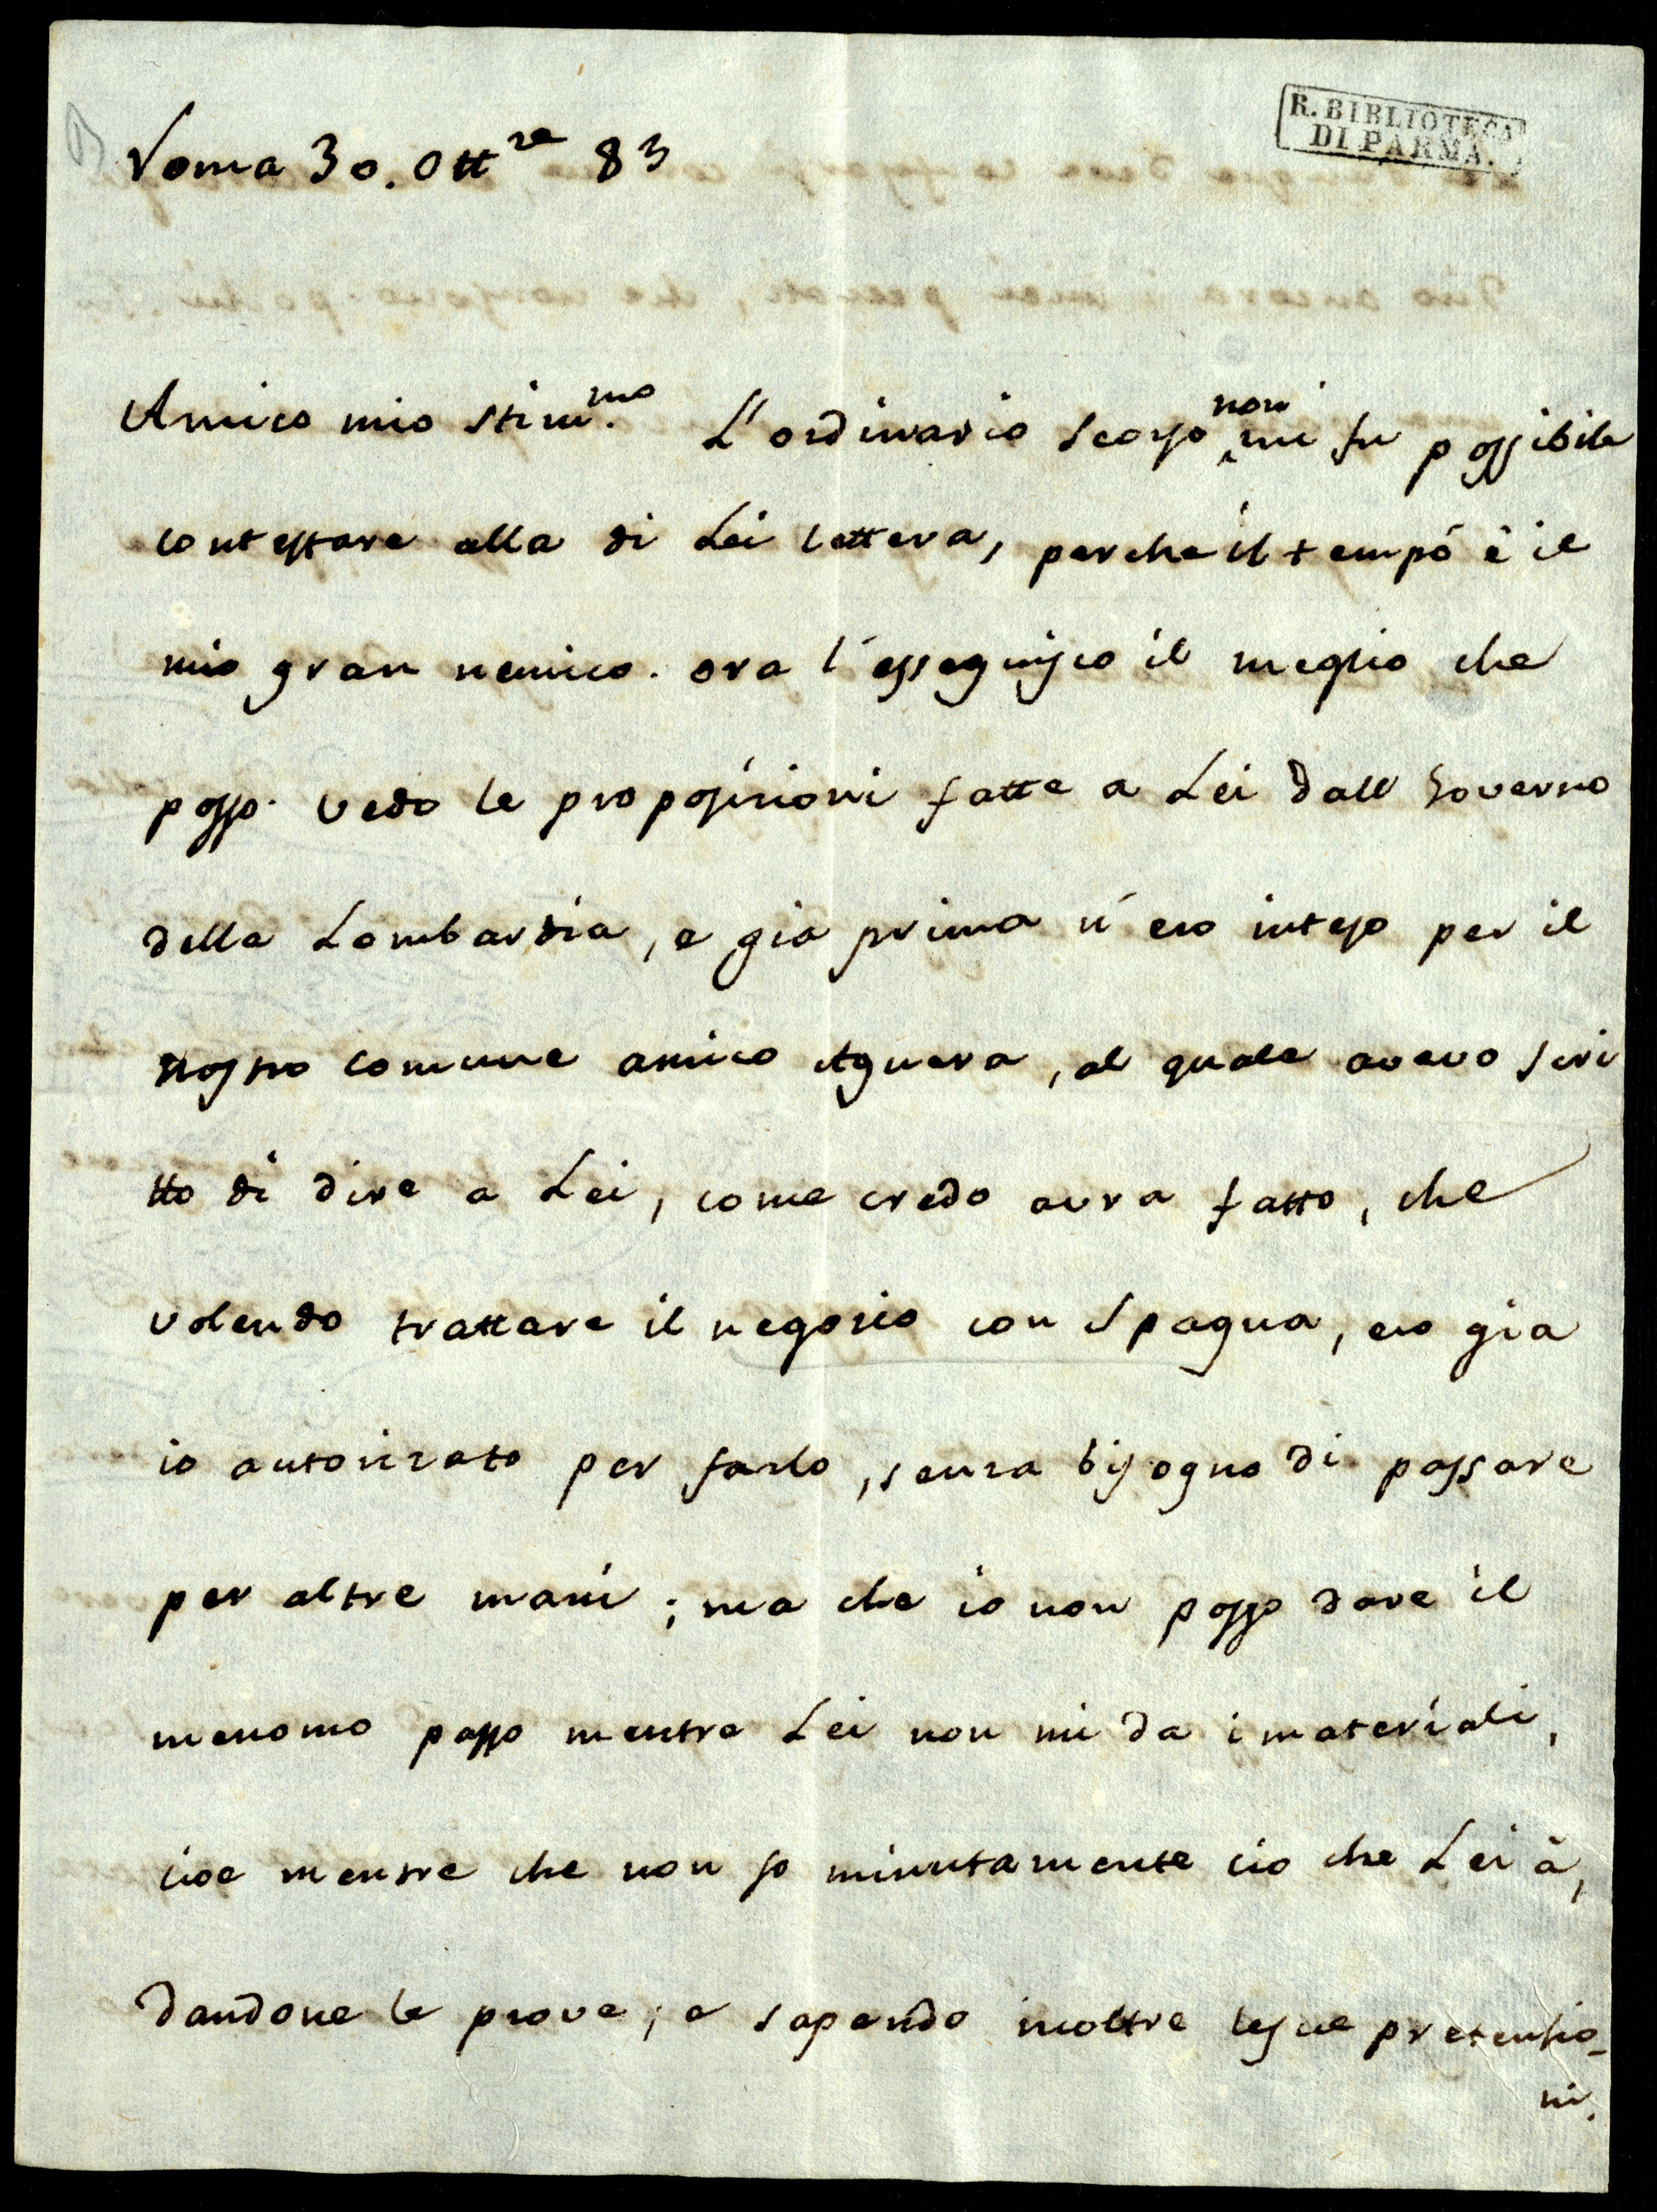 R. BIBLIOTECA
DI PARMA.
Roma 30. Ottre 83
Amico mio stimmo. L'ordinario scorso non mi fu possibile
contestare alla di Lei lettera, perche il tempo è il
mio gran nemico. ora l'esseguisco il meglio che
posso. vedo le proposizioni fatte a Lei dall Governo
della Lombardia, e gia prima n'ero inteso per il
nostro comune amico Aguera, al quale avevo scri
tto di dire a Lei, come credo avra fatto, che
volendo trattare il negozio con Spagna, ero gia
io autorizato per farlo, senza bisogno di passare
per altre mani; ma che io non posso dare il
menomo passo mentre Lei non mi da i materiali,
cioe mentre che non so minutamente cio che Lei à,
dandone le prove; e sapendo inoltre le sue pretensio-
ni.